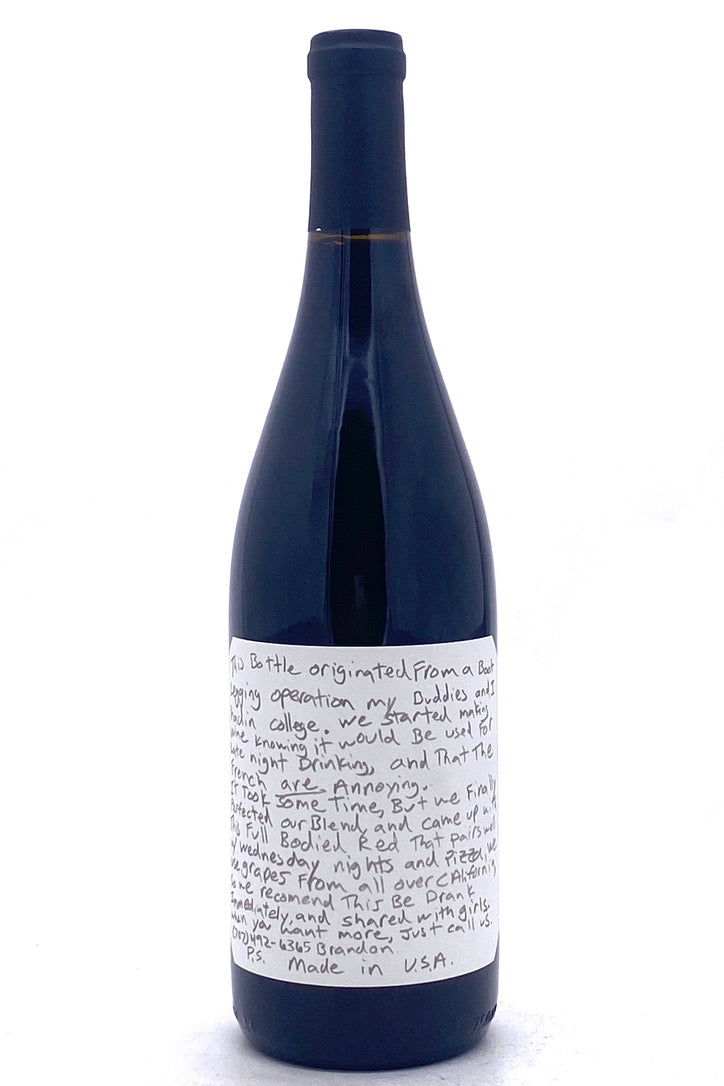 This Bottle originated From a Boot
legging operation my Buddies and I
had in college. we started making
wine knowing it would Be used For
late night Drinking, and That The
French are Annoying.
IT Took some Time, But we Finally
Perfected our Blend, and came up with
This Full Bodied Red That pairs well
w/ wednesday nights and Pizza, we
use grapes From all over CAlifornia,
so we recomend This Be Drank
Immediately, and shared with girls.
when you want more, Just call us.
(707) 492-6365 Brandon
P.S. Made in U.S.A.